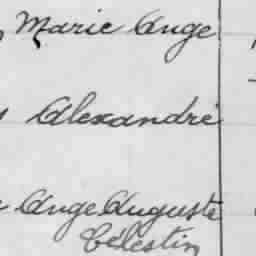 Marie Ange
Alexandre
Ange Auguste
Célestin